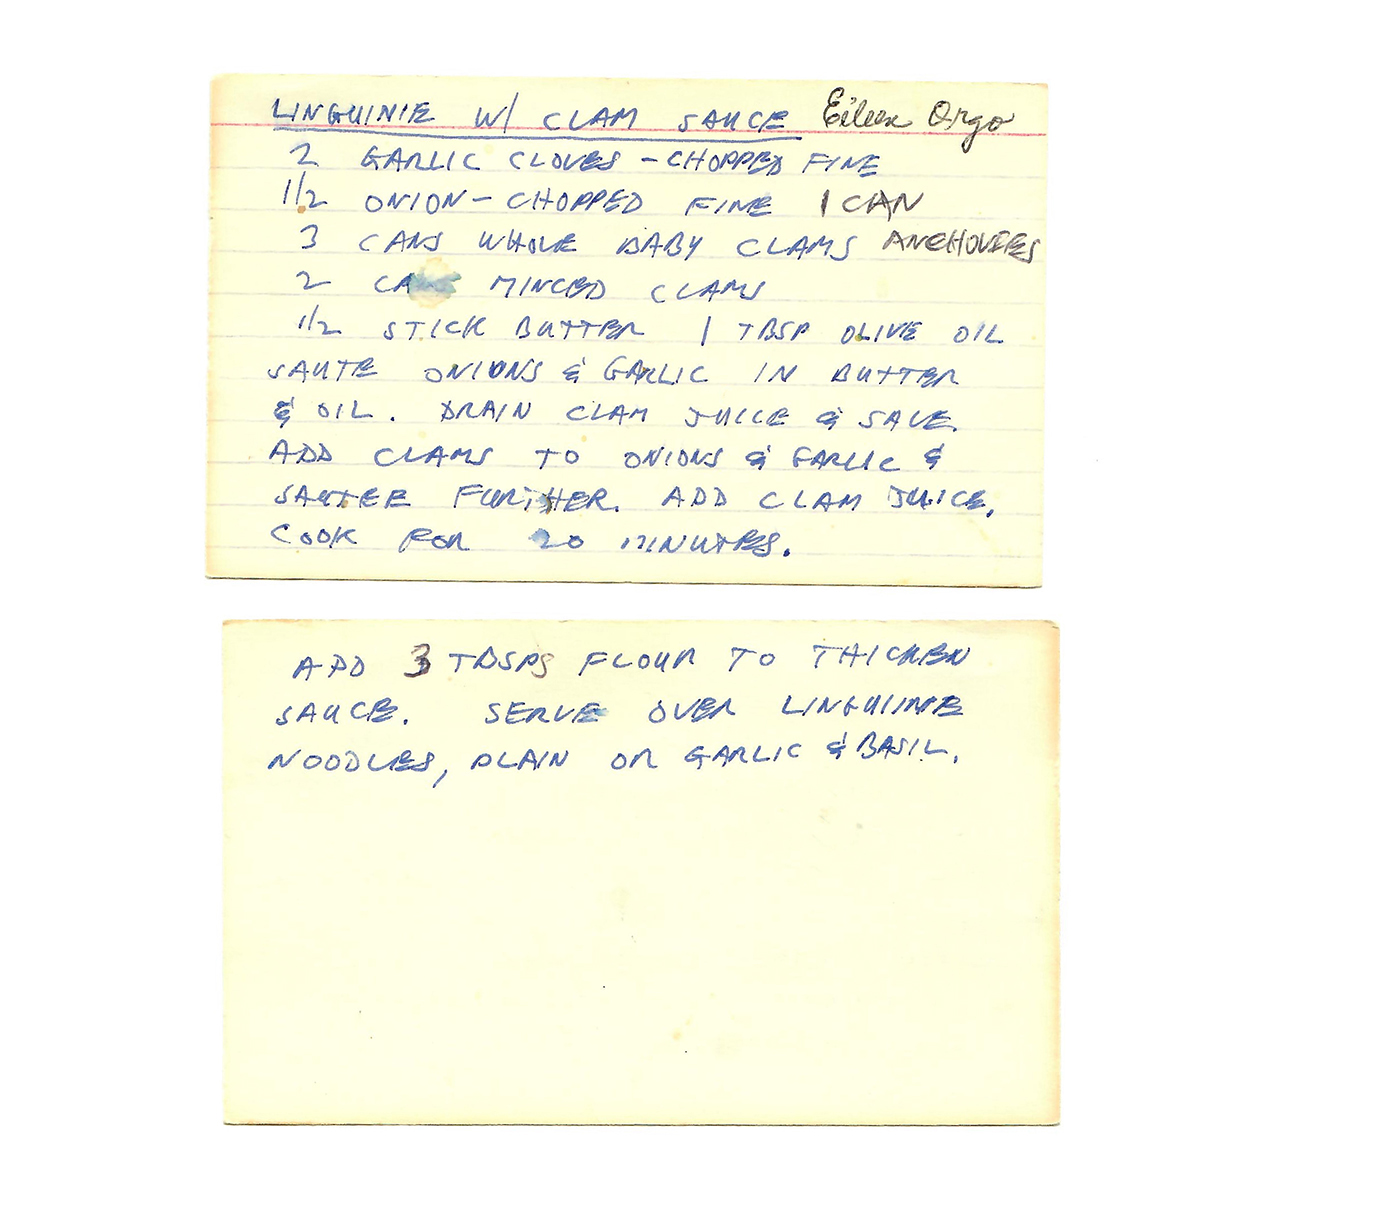 LINGUINIE W/ CLAM SAUCE Eileen Orgo
2 GARLIC CLOVES - CHOPPED FINE
1/2 ONION - CHOPPED FINE 1 CAN
3 CANS WHOLE BABY CLAMS ANCHOVIES
2 MINCED CLAMS
1/2 STICK BUTTER 1 TBSP OLIVE OIL
SAUTE ONIONS & GARLIC IN BUTTER
& OIL. DRAIN CLAM JUICE & SAVE.
ADD CLAMS TO ONIONS & GARLIC &
SAUTEE FURTHER. ADD CLAM JUICE.
COOK FOR 20 MINUTES.
ADD 3 TBSPS FLOUR TO THICKEN
SAUCE. SERVE OVER LINGUINIE
NOODLES, PLAIN OR GARLIC & BASIL.